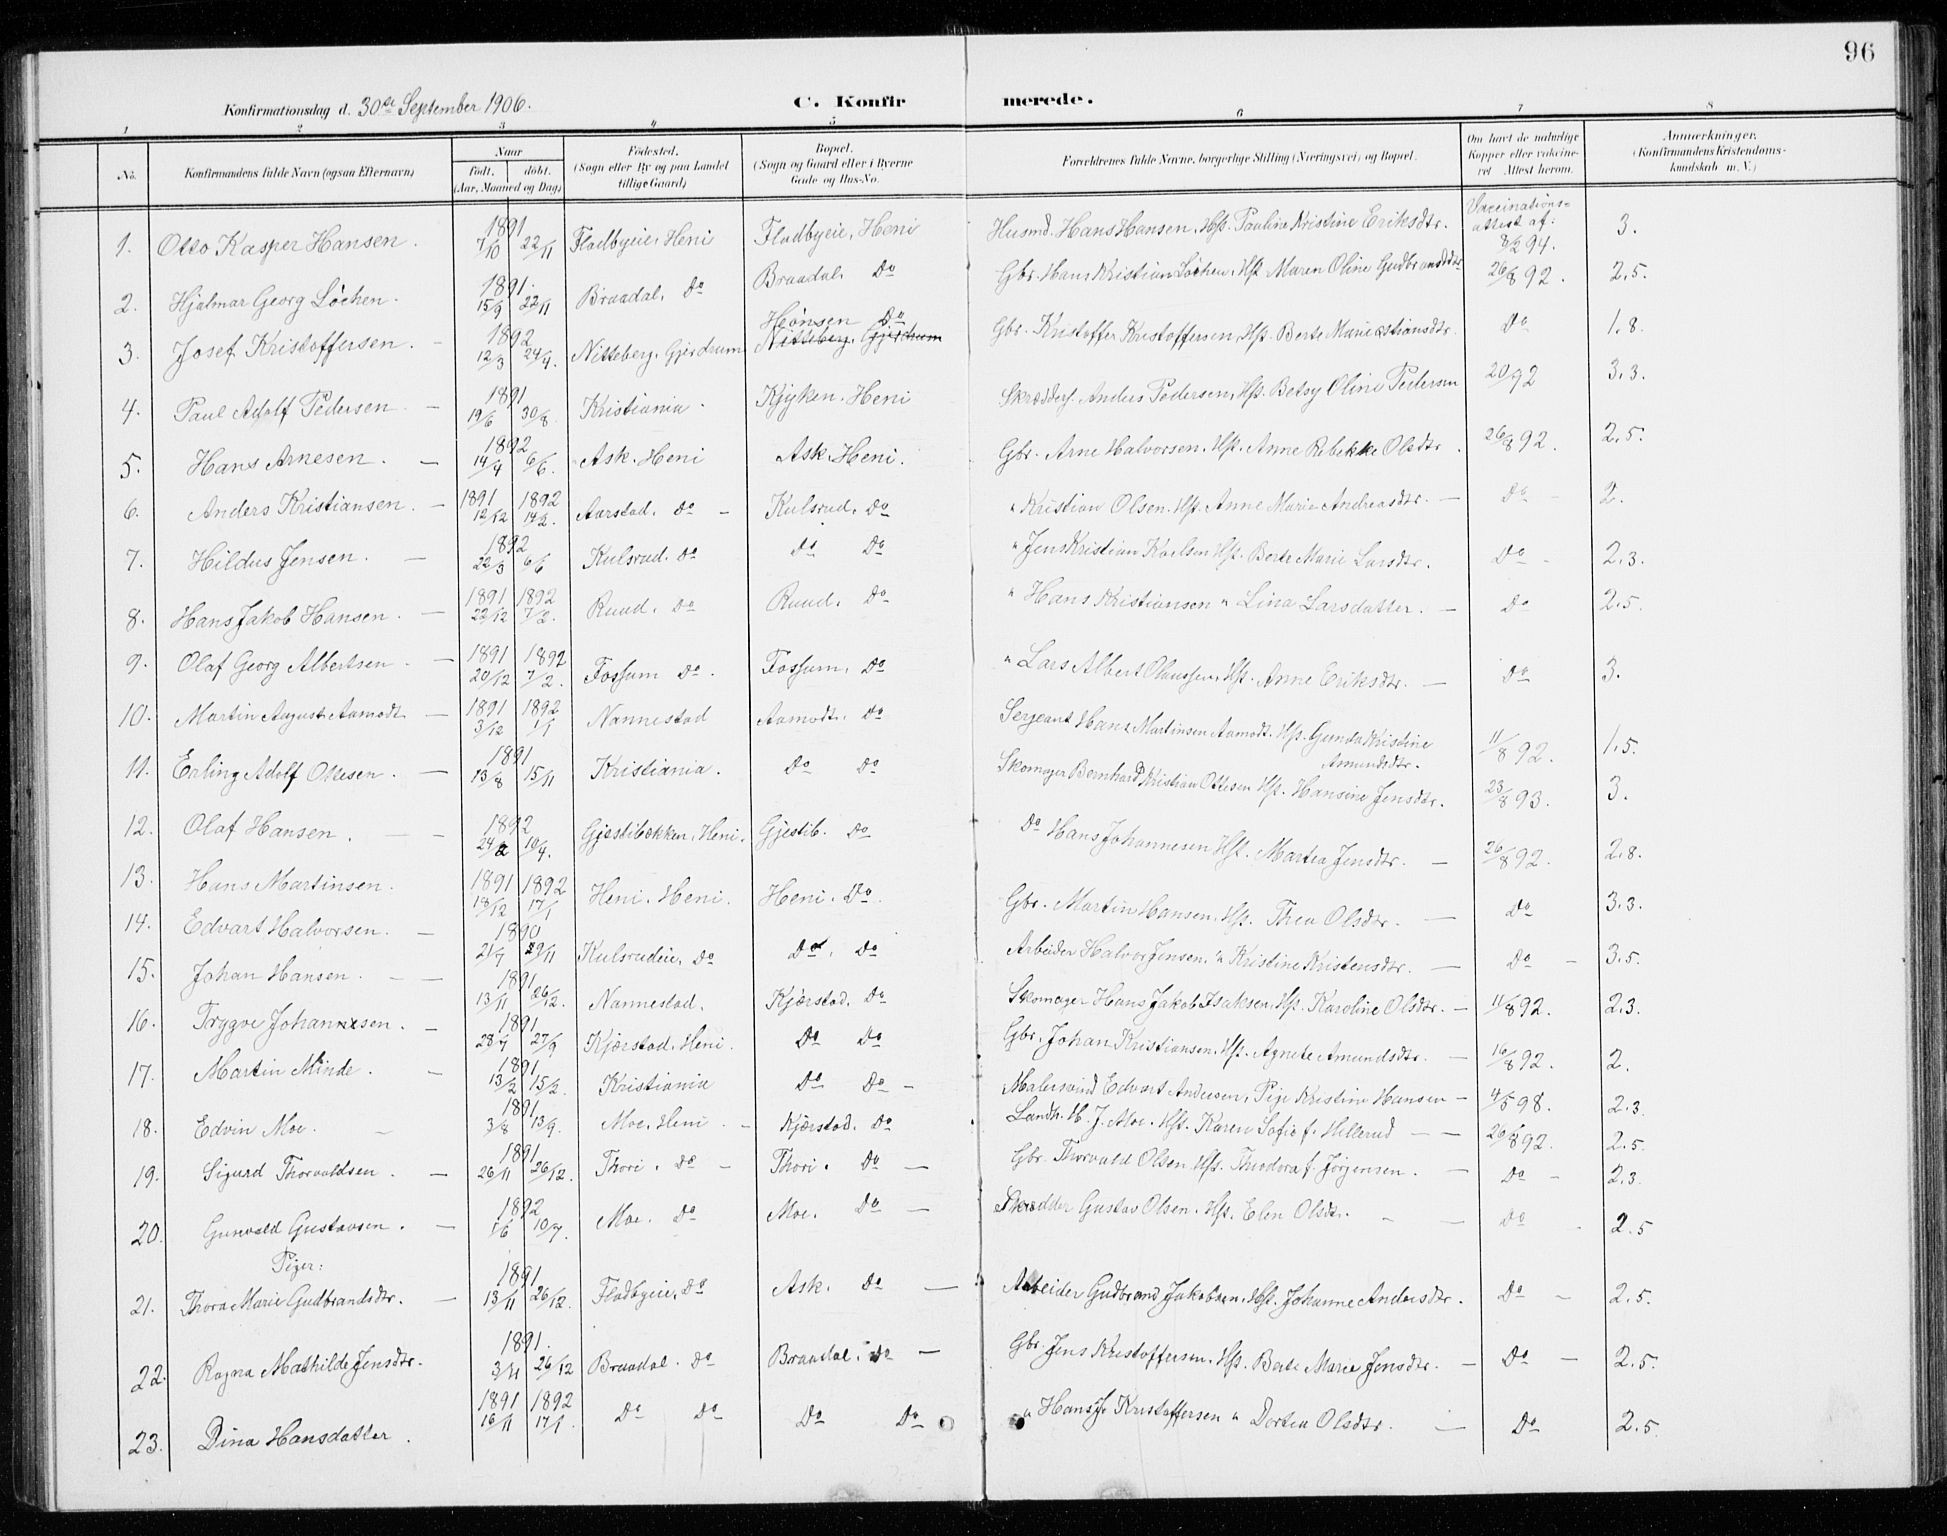 96
Konfirmationsdag d. 30te September 1906. C. Konfirmerede.
1 2 3 4 5 6 7 8
No. Konfirmandens fulde Navn (ogsaa Efternavn) Naar født. døbt. (Aar, Maaned og Dag) Fødested. (Sogn eller By og paa Landet tillige Gaard) Bopæl. (Sogn og Gaard eller i Byerne Gade og Hus-No. Forældrenes fulde Navne, borgerlige Stilling (Næringsvei) og Bopæl. Om havt de naturlige Kopper eller vakcineret Attest herom. Anmærkninger. (Konfirmandens Kristendomskundskab m. V.)
1. Otto Kasper Hansen. 1891 7/10 22/11 Fladbyeie, Heni Fladbyeie, Heni Husmd. Hans Hansen, Hst. Pauline Kristine Eriksdtr. Vaccinationsattest af: 8/2 94. 3.
2. Hjalmar Georg Løchen. 1891. 15/9 22/11 Braadal, Do Braadal, Do Gbr. Hans Kristian Løchen, Hst. Maren Oline Gudbrandsdtr 26/8 92. 2,5.
3. Josef Kristoffersen. 1892 12/3 24/4. Nitteberg, Gjerdrum Hønsen Do Nitteberg, Gjerdrum Gbr. Kristoffer Kristoffersen, Hst. Berte Marie Do 1.8.
4. Paul Adolf Pedersen. 1891 19/6 30/8. Kristiania. Kjyken. Heni Anders Pedersen, Hst. Betsy Oline Pedersen 92 3,3.
5. Hans Arnesen. 1892 14/4 6/6. Ask. Heni Ask. Heni. Gbr. Arne Halvorsen, Hst. Anne Rebekke Olsdtr. 26/8 92. 2,5.
6. Anders Kristiansen. 1891 12/12 1892 14/2. Aarstad, Do Kulsrud, Do " Kristian Olsen. Hst. Anne Marie Andreasdtr. Do 2.
7. Hildus Jensen. 1892 22/3 6/6 Kulsrud. Do Do Do " Jens Kristian Karlsen Hst. Berte Marie Larsdtr. Do 2,3.
8. Hans Jakob Hansen. 1891 22/12 1892 7/2. Ruud. Do Ruud. Do " Hans Kristiansen " Lina Larsdatter. Do 2,5.
9. Olaf Georg Albertsen. 1891 20/12 1892 7/2. Fossum Do. Fossum, Do " Lars Albert Olaussen, Hst. Anne Eriksdtr. Do 3.
10. Martin August Aamodt 1891 3/12 1892 1/1 Nannestad Aamodt. Do Sergeant Hans Martinsen Aamodt. Hst. Gunda Kristine Amundsdtr. 11/8 92. 1,5.
11. Erling Adolf Ottesen. 1891 13/8 15/11 Kristiania. Do Do Skomager Bernhard Kristian Ottesen Hst. Hansine Jensdtr. 23/8 93. 3.
12. Olaf Hansen. 1892 24/2 10/4. Gjestibækken, Heni. Gjestib. Do Do Hans Johannesen Hst. Martea Jensdtr. 26/8 92. 2,8.
13. Hans Martinsen. 1891 18/12 1892 17/1 Heni. Heni. Heni. Do. Gbr. Martin Hansen, Hst. Thea Olsdtr. Do 3,3.
14. Edvart Halvorsen. 1890 21/7 29/11 Kulsrudeie, Do Do, Do Arbeider Halvor Jensen. " Kristine Kristensdtr. Do 3,5.
15. Johan Hansen. 1891 13/11 26/12. Nannestad. Kjærstad. Do Skomager Hans Jakob Isaksen, Hst. Karoline Olsdtr. 11/8 92. 2,3.
16. Trygve Johannesen. 1891 28/7 27/9 Kjærstad, Heni. Do Do Gbr. Johan Kristiansen. Hst. Agnete Amundsdtr. 16/8 92. 2.
17. Martin Minde. 1891 13/2 15/2. Kristiania Do Do Malersvend Edvart Andersen, Pige Kristine Hansen 4/5 98. 2,3.
18. Edvin Moe. 1891 3/8 13/9. Moe, Heni. Kjærstad. Do Landh. H. J. Moe. Hst. Karen Sofie f. Hillerud 26/8 92. 2,5.
19. Sigurd Thorvaldsen. 1891 26/11 26/12. Thori. Do Thori. Do Gbr. Thorvald Olsen. Hst. Theodora f. Jørgensen. Do 2,3.
20. Gunvald Gustavsen. 1892 1/6 10/7. Moe. Do Moe. Do Skrædder Gustav Olsen. Hst. Elen Olsdtr. Do 2,5
Piger:
21. Thora Marie Gudbrandsdtr. 1891 13/11 26/12. Fladbyeie, Do Ask. Do Arbeider Gudbrand Jakobsen. Hst. Johanne Andersdtr. Do 2,5.
22. Ragna Mathilde Jensdtr. 1891. 3/11 26/12 Braadal. Do Braadal. Do Gbr. Jens Kristoffersen. Hst. Berte Marie Jensdtr. Do 2,5.
23. Dina Hansdatter. 1891 16/11 1892 17/1. Do Do Do Do " Kristoffersen " Dortea Olsdtr. Do 2,5.